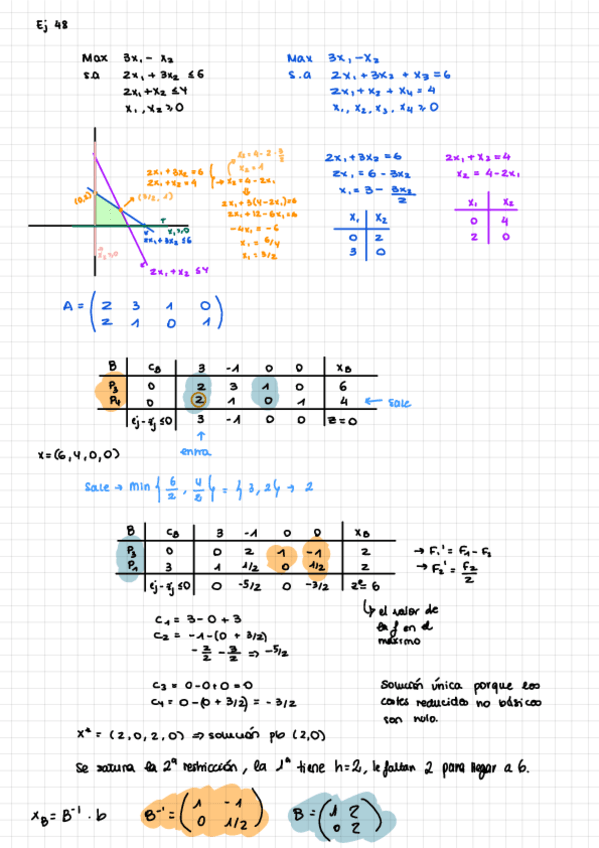 Ej 48
Max 3x₁ - x₂
s.a 2x₁ + 3x₂ ≤ 6
2x₁ + x₂ ≤ 4
x₁, x₂ ≥ 0
Max 3x₁ - x₂
s.a 2x₁ + 3x₂ + x₃ = 6
2x₁ + x₂ + x₄ = 4
x₁, x₂, x₃, x₄ ≥ 0
(0,2)
2x₁ + 3x₂ = 6
2x₁ + x₂ = 4
(3/2, 1)
x₁ ≥ 0
2x₁ + 3x₂ ≤ 6
x₂ ≥ 0
2x₁ + x₂ ≤ 4
x₂ = 4 - 2 · 3/2
x₂ = 1
→ x₂ = 4 - 2x₁
2x₁ + 3(4 - 2x₁) = 6
2x₁ + 12 - 6x₁ = 6
-4x₁ = -6
x₁ = 6/4
x₁ = 3/2
2x₁ + 3x₂ = 6
2x₁ = 6 - 3x₂
x₁ = 3 - 3x₂/2
x₁ x₂
0 2
3 0
2x₁ + x₂ = 4
x₂ = 4 - 2x₁
x₁ x₂
0 4
2 0
A = ( 2 3 1 0
2 1 0 1 )
B C_B 3 -1 0 0 x_B
P₃ 0 2 3 1 0 6
P₄ 0 2 1 0 1 4 ← sale
cj - zj ≤ 0 3 -1 0 0 z = 0
↑
entra
x = (6, 4, 0, 0)
Sale → min { 6/2, 4/2 } = { 3, 2 } → 2
B C_B 3 -1 0 0 x_B
P₃ 0 0 2 1 -1 2 → F₁' = F₁ - F₂
P₁ 3 1 1/2 0 1/2 2 → F₂' = F₂/2
cj - zj ≤ 0 0 -5/2 0 -3/2 z* = 6
↳ el valor de
la f en el
máximo
C₁ = 3 - 0 + 3
C₂ = -1 - (0 + 3/2)
- 2/2 - 3/2 ⇒ -5/2
C₃ = 0 - 0 + 0 = 0
C₄ = 0 - (0 + 3/2) = - 3/2
Solución única porque los
costes reducidos no básicos
son nulo.
x* = (2, 0, 2, 0) ⇒ solución plb (2,0)
Se satura la 2ª restricción, la 1ª tiene h=2, le faltan 2 para llegar a 6.
x_B = B⁻¹ · b
B⁻¹ = ( 1 -1
0 1/2 )
B = ( 1 2
0 2 )